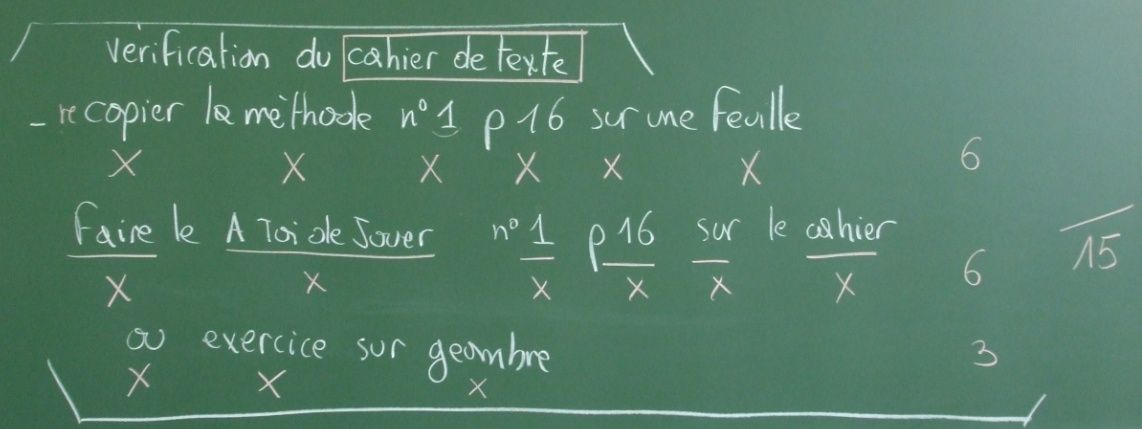 vérification du cahier de texte
- recopier la méthode n° 1 p 16 sur une feuille
X X X X X X 6
Faire le A Toi de Jouer n° 1 p 16 sur le cahier
X X X X X X 6 15
ou exercice sur geombre
X X X 3